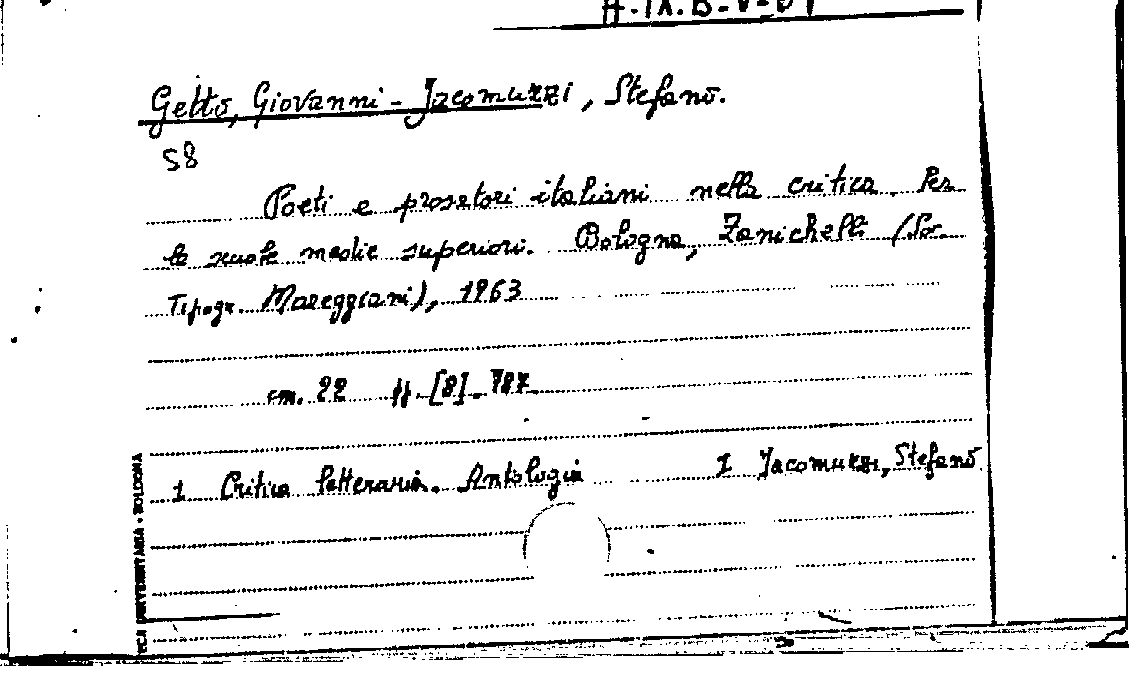 A-IX.B-V-
Getto, Giovanni - Jacomuzzi, Stefano.
58
Poeti e prosatori italiani nella critica. Per
le scuole medie superiori. Bologna, Zanichelli (Soc.
Tipogr. Mareggiani), 1963
cm. 22 pp. [8]. 787.
1 Critica letteraria. Antologia 1 Jacomuzzi, Stefano
TECA UNIVERSITARIA • BOLOGNA